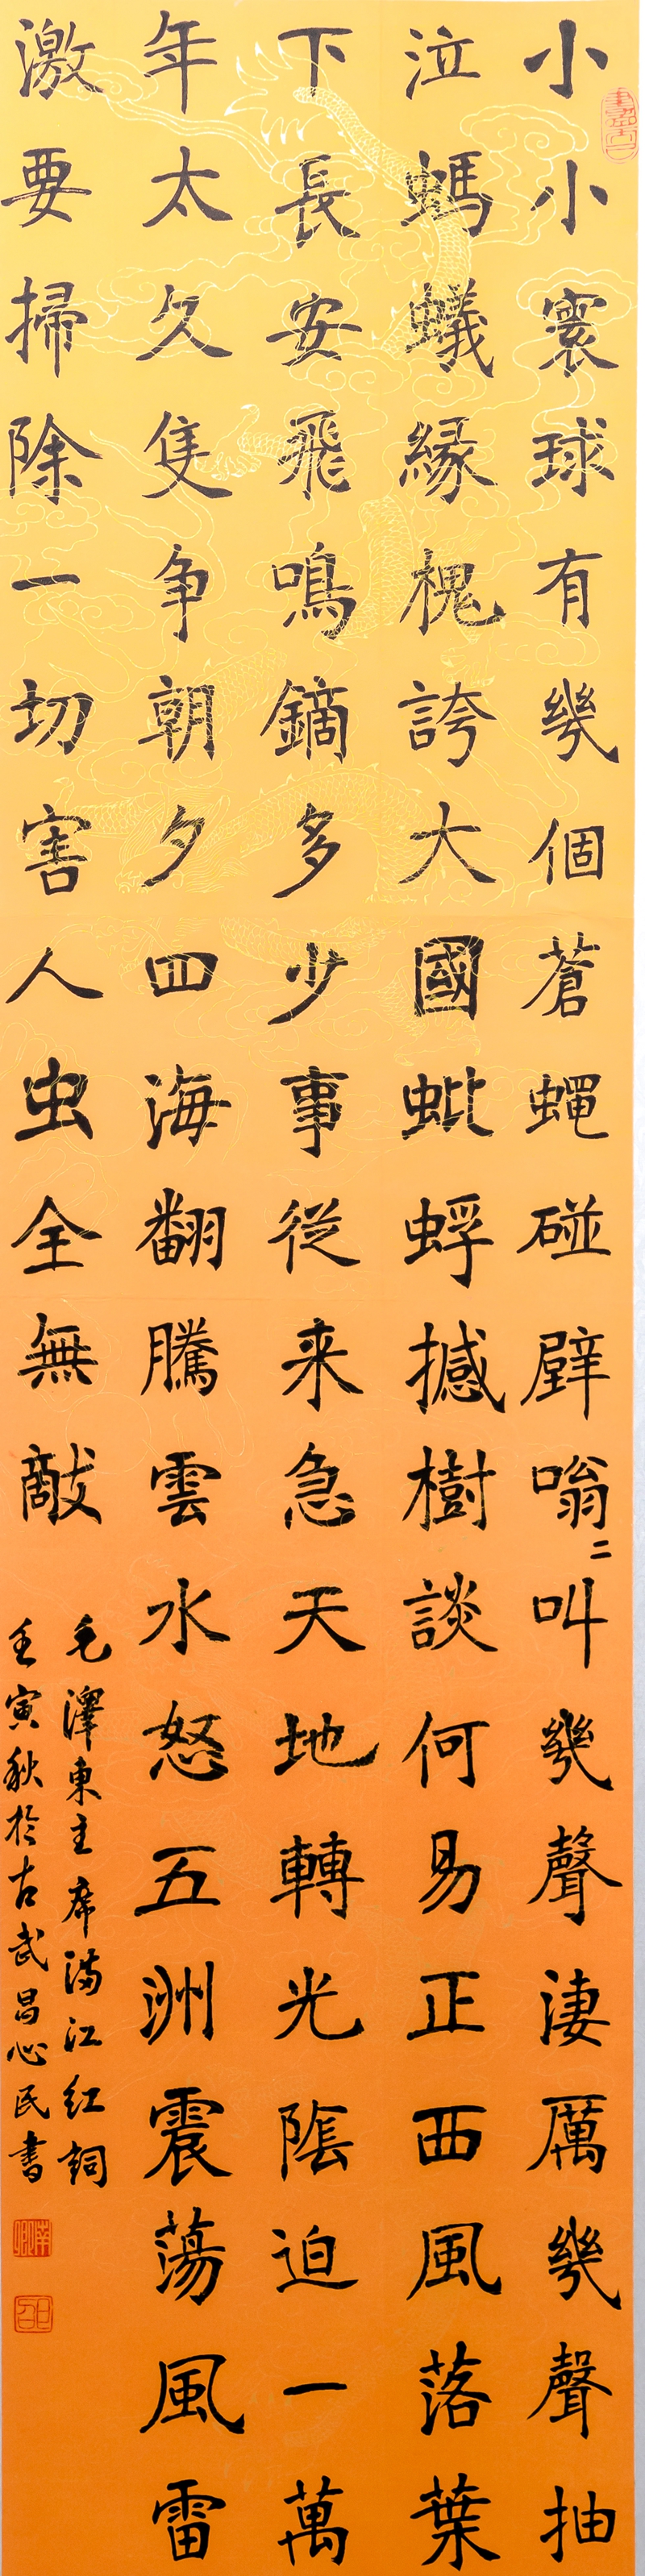 小小寰球有幾個蒼蝇碰壁嗡二叫幾聲淒厲幾聲抽
泣螞蟻緣槐誇大國蚍蜉撼樹談何易正西風落葉
下長安飛鳴鏑多少事從来急天地轉光隂迫一萬
年太久隻争朝夕四海翻騰雲水怒五洲震蕩風雷
激要掃除一切害人虫全無敵
毛澤東主席滿江红詞
壬寅秋於古武昌心民書